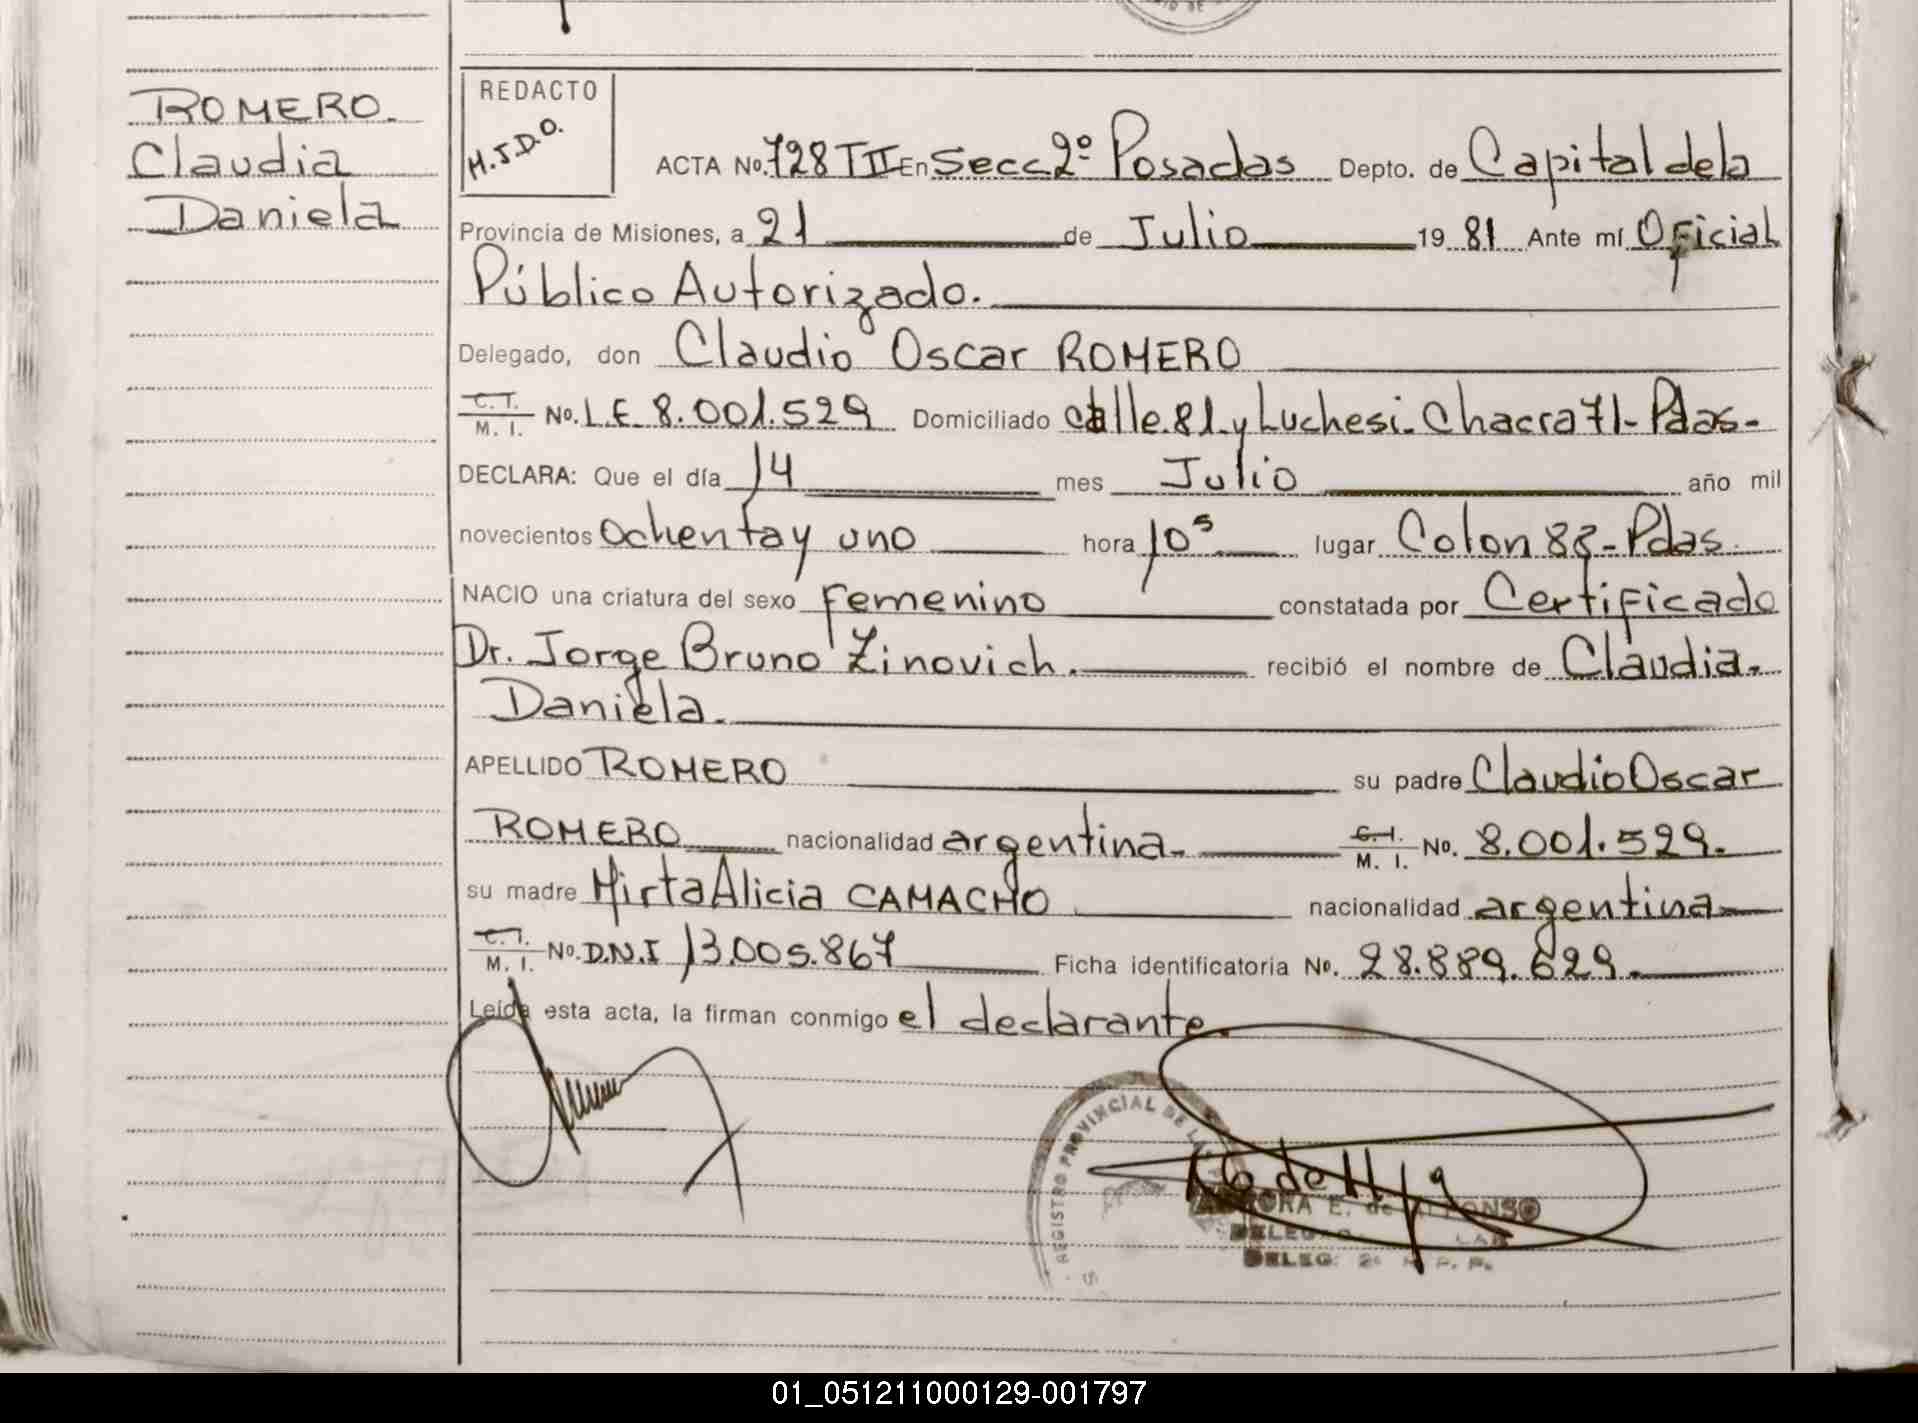 ROMERO.
Claudia
Daniela
REDACTO
M.J.D.O.
ACTA No. 728 T II En Secc 2º Posadas Depto. de Capital de la
Provincia de Misiones, a 21 de Julio 19 81 Ante mí Oficial
Público Autorizado.
Delegado, don Claudio Oscar ROMERO
C.I. M. I. No. L.E. 8.001.529 Domiciliado calle 81 y Luchesi- Chacra 71- Pdas-
DECLARA: Que el día 14 mes Julio año mil
novecientos ochenta y uno hora 10⁵ lugar Colon 83- Pdas.
NACIO una criatura del sexo femenino constatada por Certificado
Dr. Jorge Bruno Zinovich. recibió el nombre de Claudia-
Daniela.
APELLIDO ROMERO su padre Claudio Oscar
ROMERO nacionalidad argentina- C.I. M. I. No. 8.001.529.
su madre Mirta Alicia CAMACHO nacionalidad argentina
C.I. M. I. No. D.N.I 13.005.867 Ficha identificatoria No. 28.889.629.
Leída esta acta, la firman conmigo el declarante.
REGISTRO PROVINCIAL DE LAS
E. de
DELEG. 2ª
01_051211000129-001797